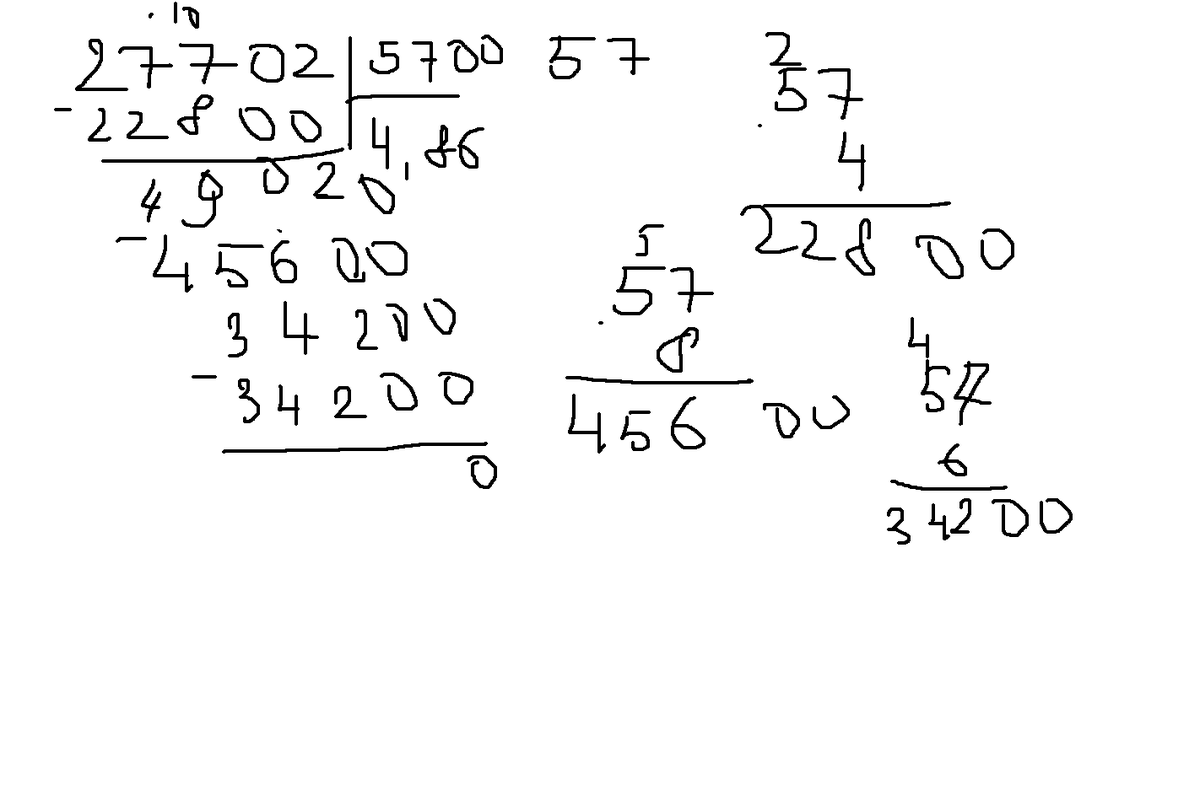 . 10
27702 | 5700
- 22800 | 4,86
49020
- 45600
34200
- 34200
0
57
2
57
. 4
22800
5
57
. 8
45600
4
57
6
34200